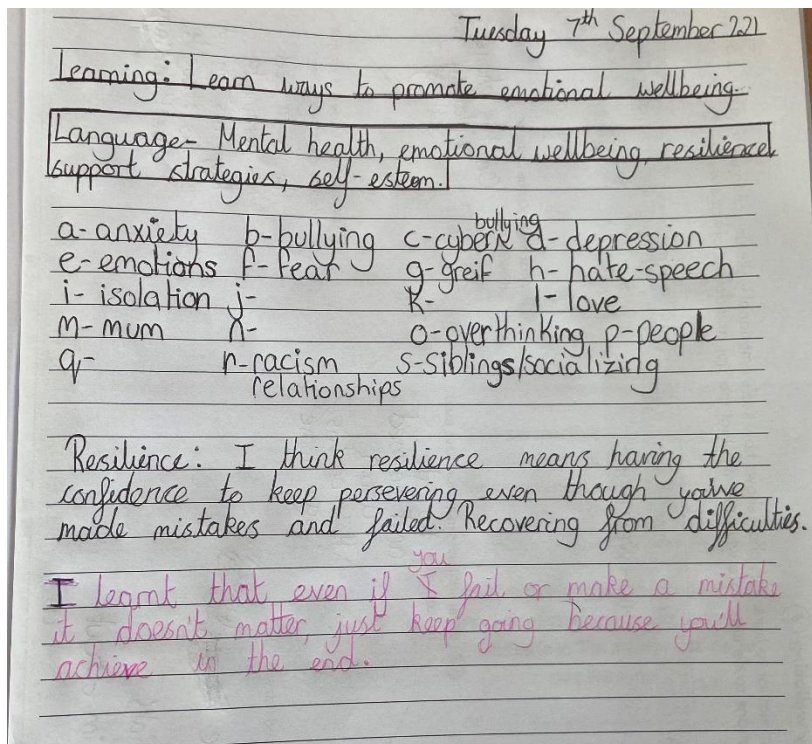 Tuesday 7th September 221
Learning: Learn ways to promote emotional wellbeing.
Language- Mental health, emotional wellbeing, resilience
support strategies, self-esteem.
a- anxiety b- bullying c- cyber bullying d- depression
e- emotions f- fear g- greif h- hate-speech
i- isolation j- k- l- love
m- mum n- o- overthinking p- people
q- r- racism s- siblings/socializing
relationships
Resilience: I think resilience means having the
confidence to keep persevering even though you've
made mistakes and failed. Recovering from difficulties.
I learnt that even if you fail or make a mistake
it doesn't matter, just keep going because you'll
achieve in the end.